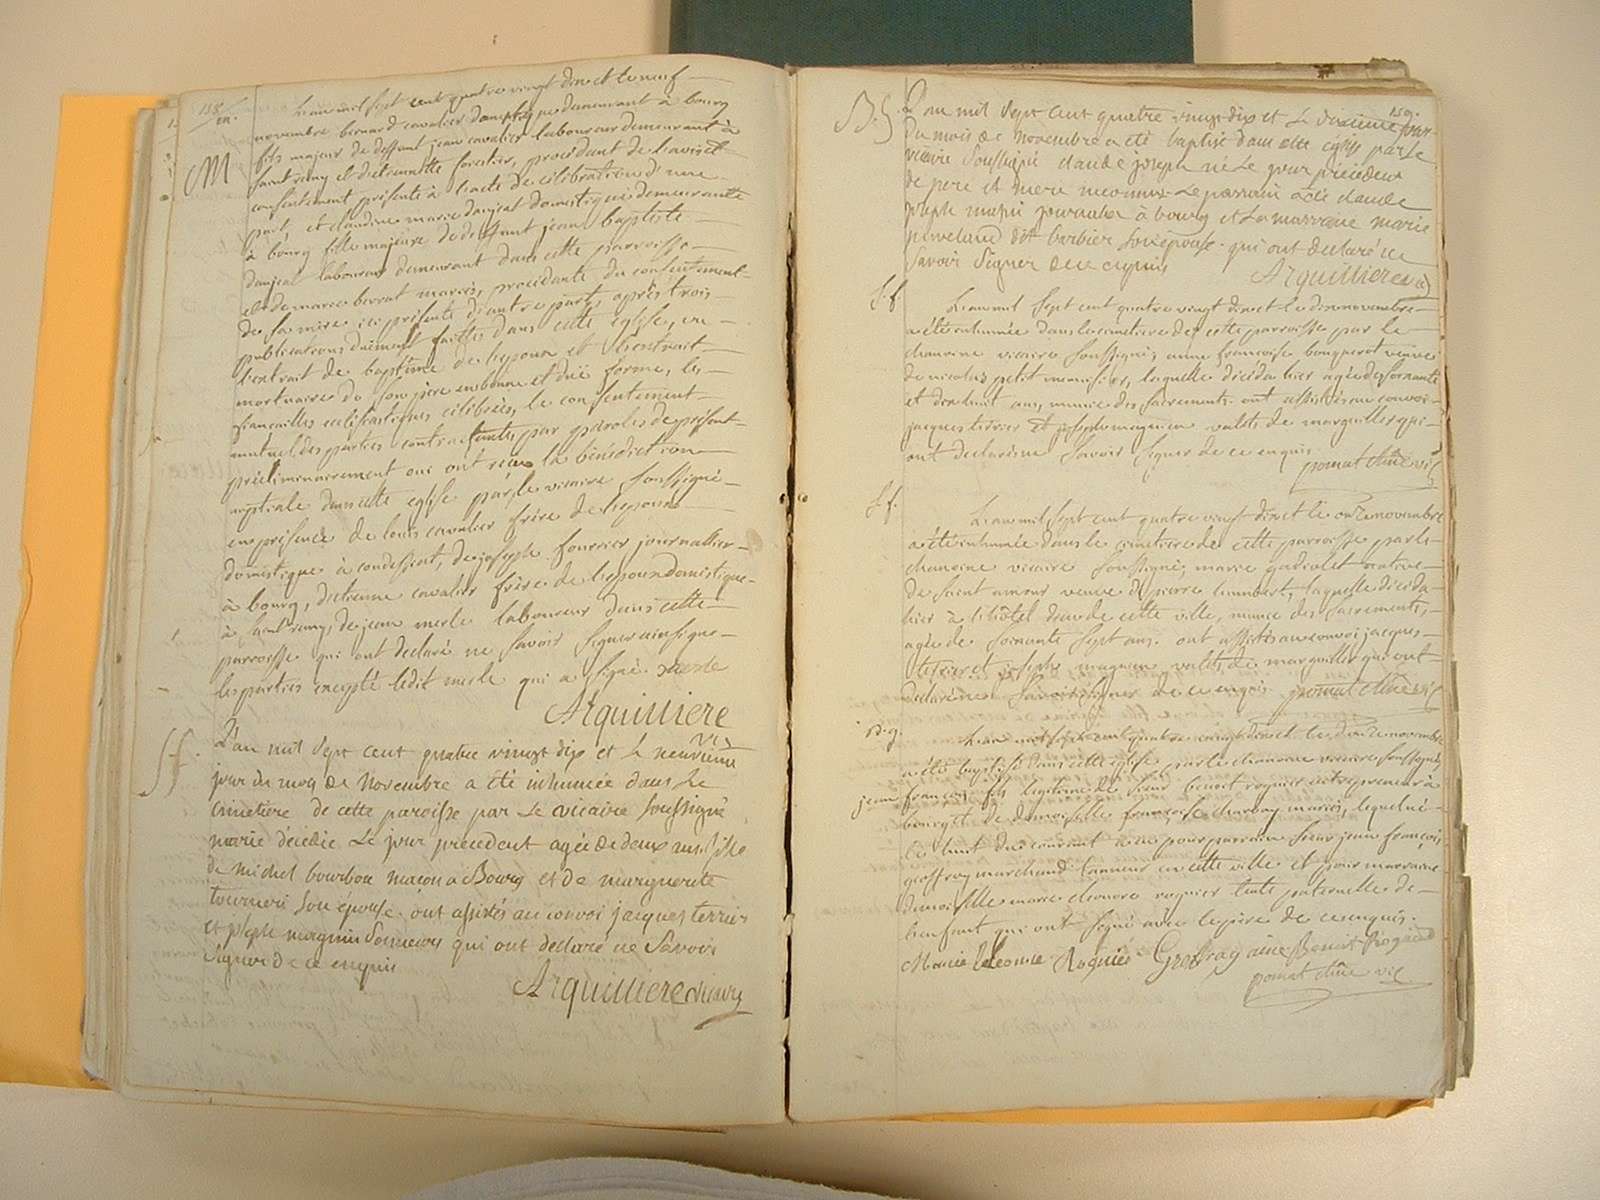 158
M
L'an mil sept cent quatre vingt dix et le neuf
novembre bernard cavalier domestique demeurant à bourg
fils majeur de deffunt jean cavalier laboureur demeurant à
saint remy et d'etiennette forestier, procédant de l'avis et
consentement présente à l'acte de célébration d'une
part, et claudine marie danjeat domestique demeurante
à bourg fille majeure de deffunt jean baptiste
danjeat laboureur demeurant dans cette parroisse
et de marie berrat mariés, procédante du consentement
de sa mère ici présente d'autre part, après trois
publications duement faittes dans cette église, vu
l'extrait de baptême de l'epoux et l'extrait
mortuaire de son père en bonne et duë forme, les
fiancailles ecclésiastiques célébrées, le consentement
mutuel des parties contractantes par paroles de présent
préliminairement oui ont reçu la bénédiction
nuptiale dans cette eglise par le vicaire soussigné
en présence de louis cavalier frère de l'epoux
domestique à condessiat, de joseph fournier journallier
à bourg, d'etienne cavalier frère de l'epoux domestique
à saint remy, de jean merle laboureur dans cette
parroisse qui ont declaré ne savoir signer ainsi que
les parties excepté ledit merle qui a signé merle
Arquilliere
vic
Sf.
L'an mil sept cent quatre vingt dix et le neuvieme
jour du mois de Novembre a été inhumée dans le
cimetiere de cette paroisse par le vicaire soussigné
marie décédée le jour précedent agée de deux ans fille
de michel bourbon maçon à Bourg et de marguerite
tournery son epouse. ont assistés au convoi jacques terrier
et joseph magnin sonneurs qui ont declaré ne savoir
signer de ce enquis
Arquilliere vicaire
159.
B.g.
L'an mil sept cent quatre vingt dix et le dixieme jour
du mois de Novembre a été baptisé dans cette eglise par le
vicaire soussigné claude joseph né le jour précedent
de pere et mere inconnus. Le parrain a été claude
joseph journalier à bourg et la marraine marie
dit barbier son épouse. qui ont declaré ne
savoir signer de ce enquis
Arquilliere vic
S.f.
L'an mil sept cent quatre vingt dix et le dix novembre
a été inhumée dans le cimetiere de cette parroisse par le
chanoine vicaire soussigné, anne françoise bouquerot veuve
de nicolas petit menuisier, laquelle décéda hier agée de soixante
et dix huit ans, munie des sacrements. ont assistés au convoi
jacques terrier et joseph magnin valets de marguillier qui
ont declaré ne savoir signer de ce enquis
pomat chne vic
S.f.
L'an mil sept cent quatre vingt dix et le onze novembre
a été inhumée dans le cimetiere de cette parroisse par le
chanoine vicaire soussigné, marie gadiolet native
de saint amour veuve de pierre humbert, laquelle décéda
hier à l'hôtel dieu de cette ville, munie des sacrements,
agée de soixante sept ans. ont assistés au convoi jacques
terrier et joseph magnin valets de marguillier qui ont
declaré ne savoir signer de ce enquis pomat chne vic
B.g.
L'an mil sept cent quatre vingt dix et le douze novembre
a été baptisé dans cette eglise par le chanoine vicaire soussigné
jean françois fils legitime de sieur benoit rognier entrepreneur à
bourg et de demoiselle françoise chambay mariés, lequel né
le huit du courant a eu pour parrain sieur jean françois
geoffray marchand tanneur en cette ville et pour marraine
demoiselle marie eleonore rognier tante paternelle de
l'enfant qui ont signé avec le père de ce enquis.
Marie Eleonore Rognier Geoffray aine Benoit Rognier
pomat chne vic